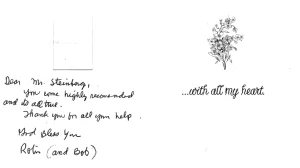 Dear Mr. Steinberg,
You come highly recommended
and it's all true.
Thank you for all your help.
God Bless You
Robin (and Bob)
...with all my heart.